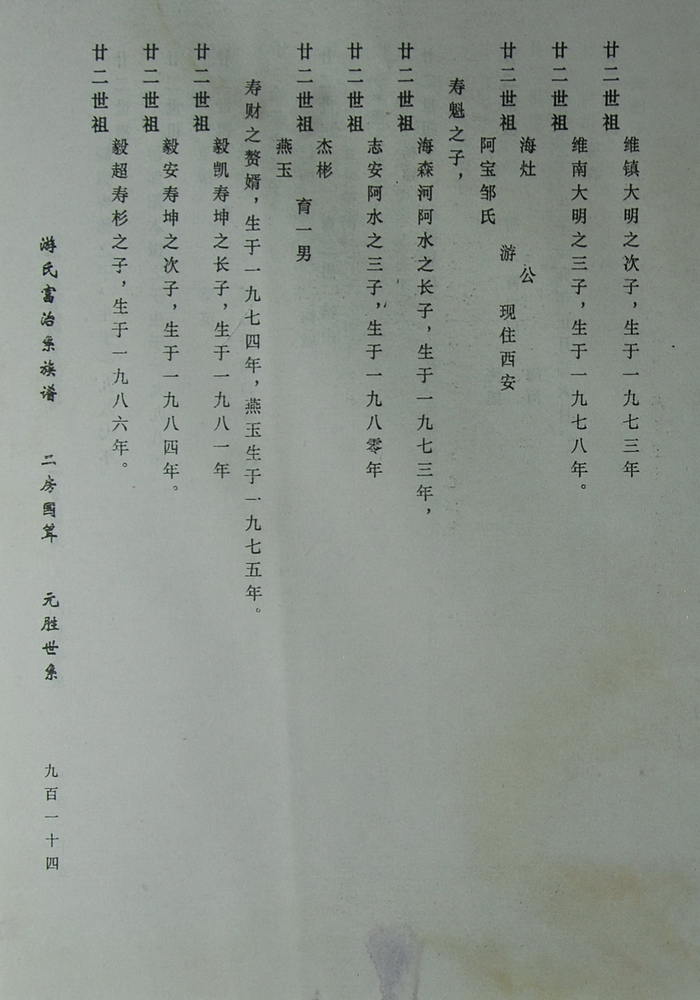 廿二世祖
维镇大明之次子，生于一九七三年
廿二世祖
维南大明之三子，生于一九七八年。
廿二世祖
海灶 公
游 现住西安
阿宝邹氏
寿魁之子，
廿二世祖
海森河阿水之长子，生于一九七三年，
廿二世祖
志安阿水之三子，生于一九八零年
廿二世祖
杰彬
育一男
燕玉
寿财之赘婿，生于一九七四年，燕玉生于一九七五年。
廿二世祖
毅凯寿坤之长子，生于一九八一年
廿二世祖
毅安寿坤之次子，生于一九八四年。
廿二世祖
毅超寿杉之子，生于一九八六年。
游氏富治系族谱 二房國 元胜世系 九百一十四